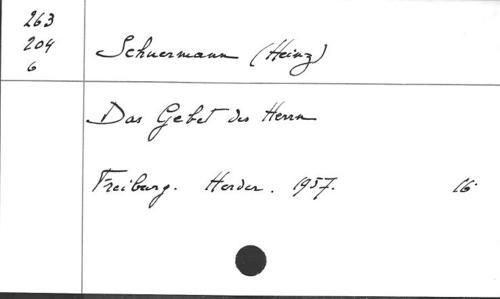 263
204
6
Schuermann (Heinz)
Das Gebet des Herrn
Freiburg. Herder. 1957. 16°